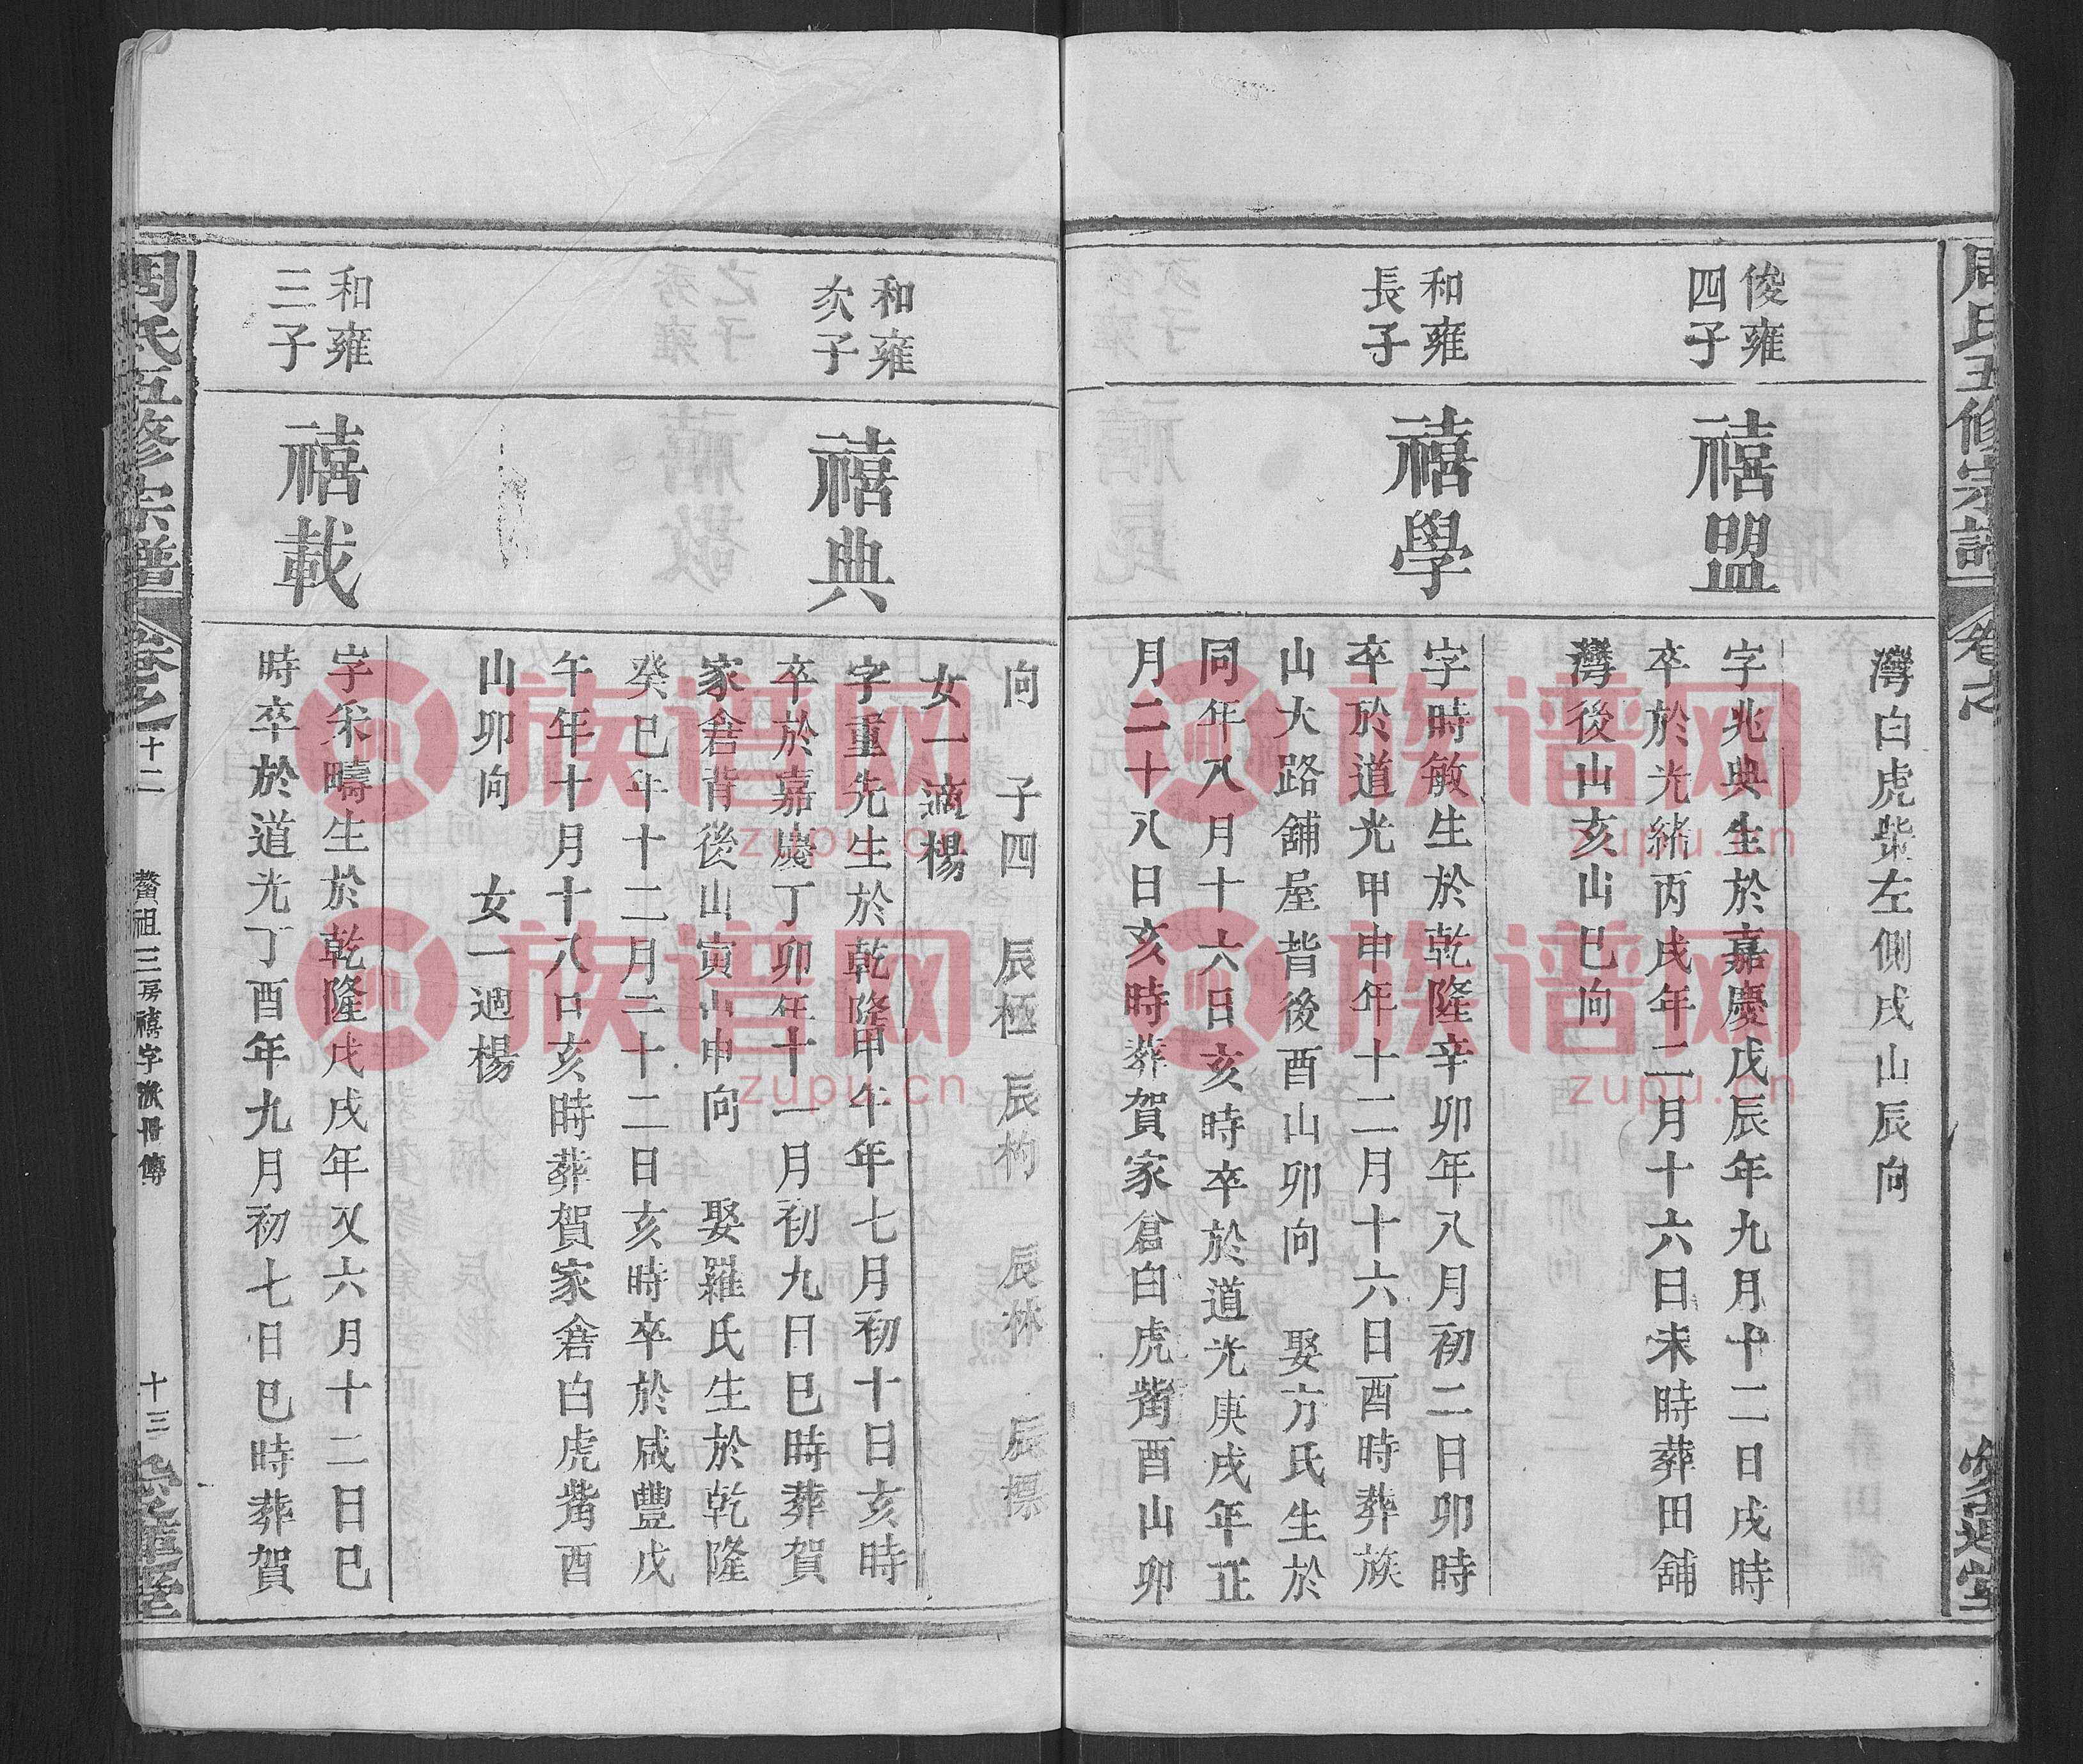 周氏五修宗譜
卷之
灣白虎柴左側戌山辰向
俊雍
四子
禧盟
字兆典生於嘉慶戊辰年九月十二日戌時
卒於光緒丙戌年二月十六日未時葬田舖
灣後山亥山巳向
和雍
長子
禧學
字時敏生於乾隆辛卯年八月初二日卯時
卒於道光甲申年十二月十六日酉時葬族
山大路舖屋背後酉山卯向 娶方氏生於
同年八月十六日亥時卒於道光庚戌年正
月二十八日亥時葬賀家倉白虎嘴酉山卯
向 子四 辰極 辰枸 辰林 辰標
女一適楊
和雍
次子
禧典
字重先生於乾隆甲午年七月初十日亥時
卒於嘉慶丁卯年十一月初九日巳時葬賀
家倉背後山寅山申向 娶羅氏生於乾隆
癸巳年十二月二十二日亥時卒於咸豐戊
午年十月十八日亥時葬賀家倉白虎嘴酉
山卯向 女一適楊
和雍
三子
禧載
字采疇生於乾隆戊戌年又六月十二日巳
時卒於道光丁酉年九月初七日巳時葬賀
周氏五修宗譜
卷之
十二
鰲祖三房禧字派冊傳
十三
愛蓮堂
族谱网
zupu.cn
族谱网
zupu.cn
族谱网
zupu.cn
族谱网
zupu.cn